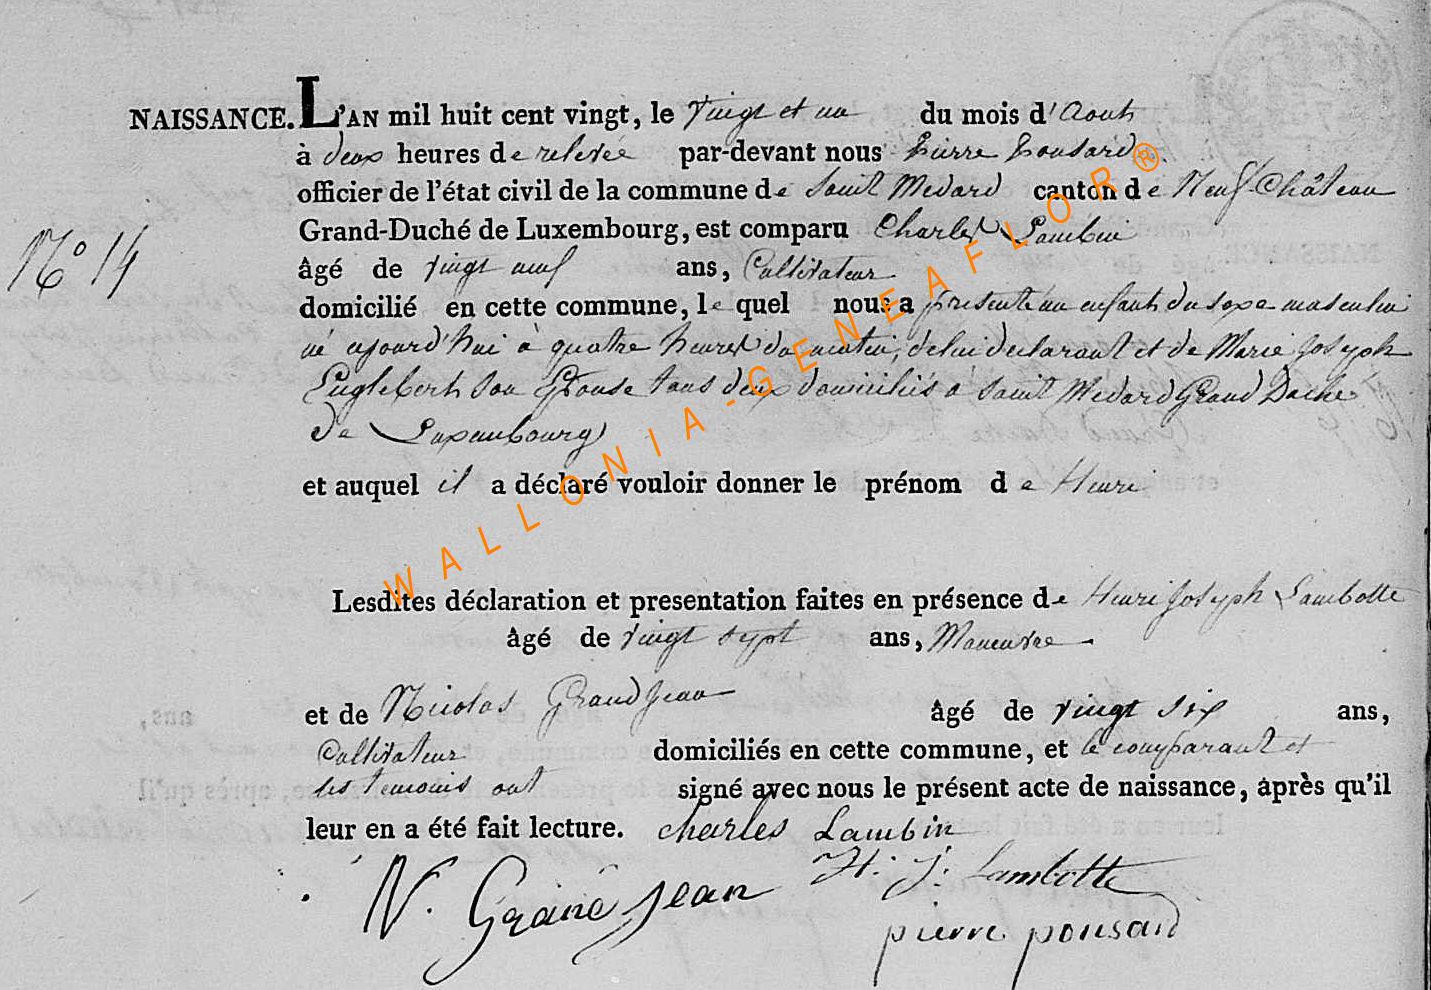 NAISSANCE. L'AN mil huit cent vingt, le vingt et un du mois d'Aout
à deux heures de relevée par-devant nous Pierre Pousard
officier de l'état civil de la commune de Saint Medard canton de Neuf-Château
Grand-Duché de Luxembourg, est comparu Charles Lambin
N° 14
âgé de vingt neuf ans, Cultivateur
domicilié en cette commune, le quel nous a présenté un enfant du sexe masculin
né ajourd'hui à quatre heures du matin, de lui declarant et de Marie Joseph
Englebert son Epouse tous deux domiciliés à Saint Medard Grand Duché
de Luxembourg
et auquel il a déclaré vouloir donner le prénom de Henri
WALLONIA-GENEAFLOR®
Lesdites déclaration et presentation faites en présence de Henri Joseph Lambotte
âgé de vingt sept ans, Maneuvre
et de Nicolas Grandjean âgé de vingt six ans,
Cultivateur domiciliés en cette commune, et le comparant et
les temoins ont signé avec nous le présent acte de naissance, après qu'il
leur en a été fait lecture. charles Lambin
H. J. Lambotte
N. Grandjean
pierre pousard